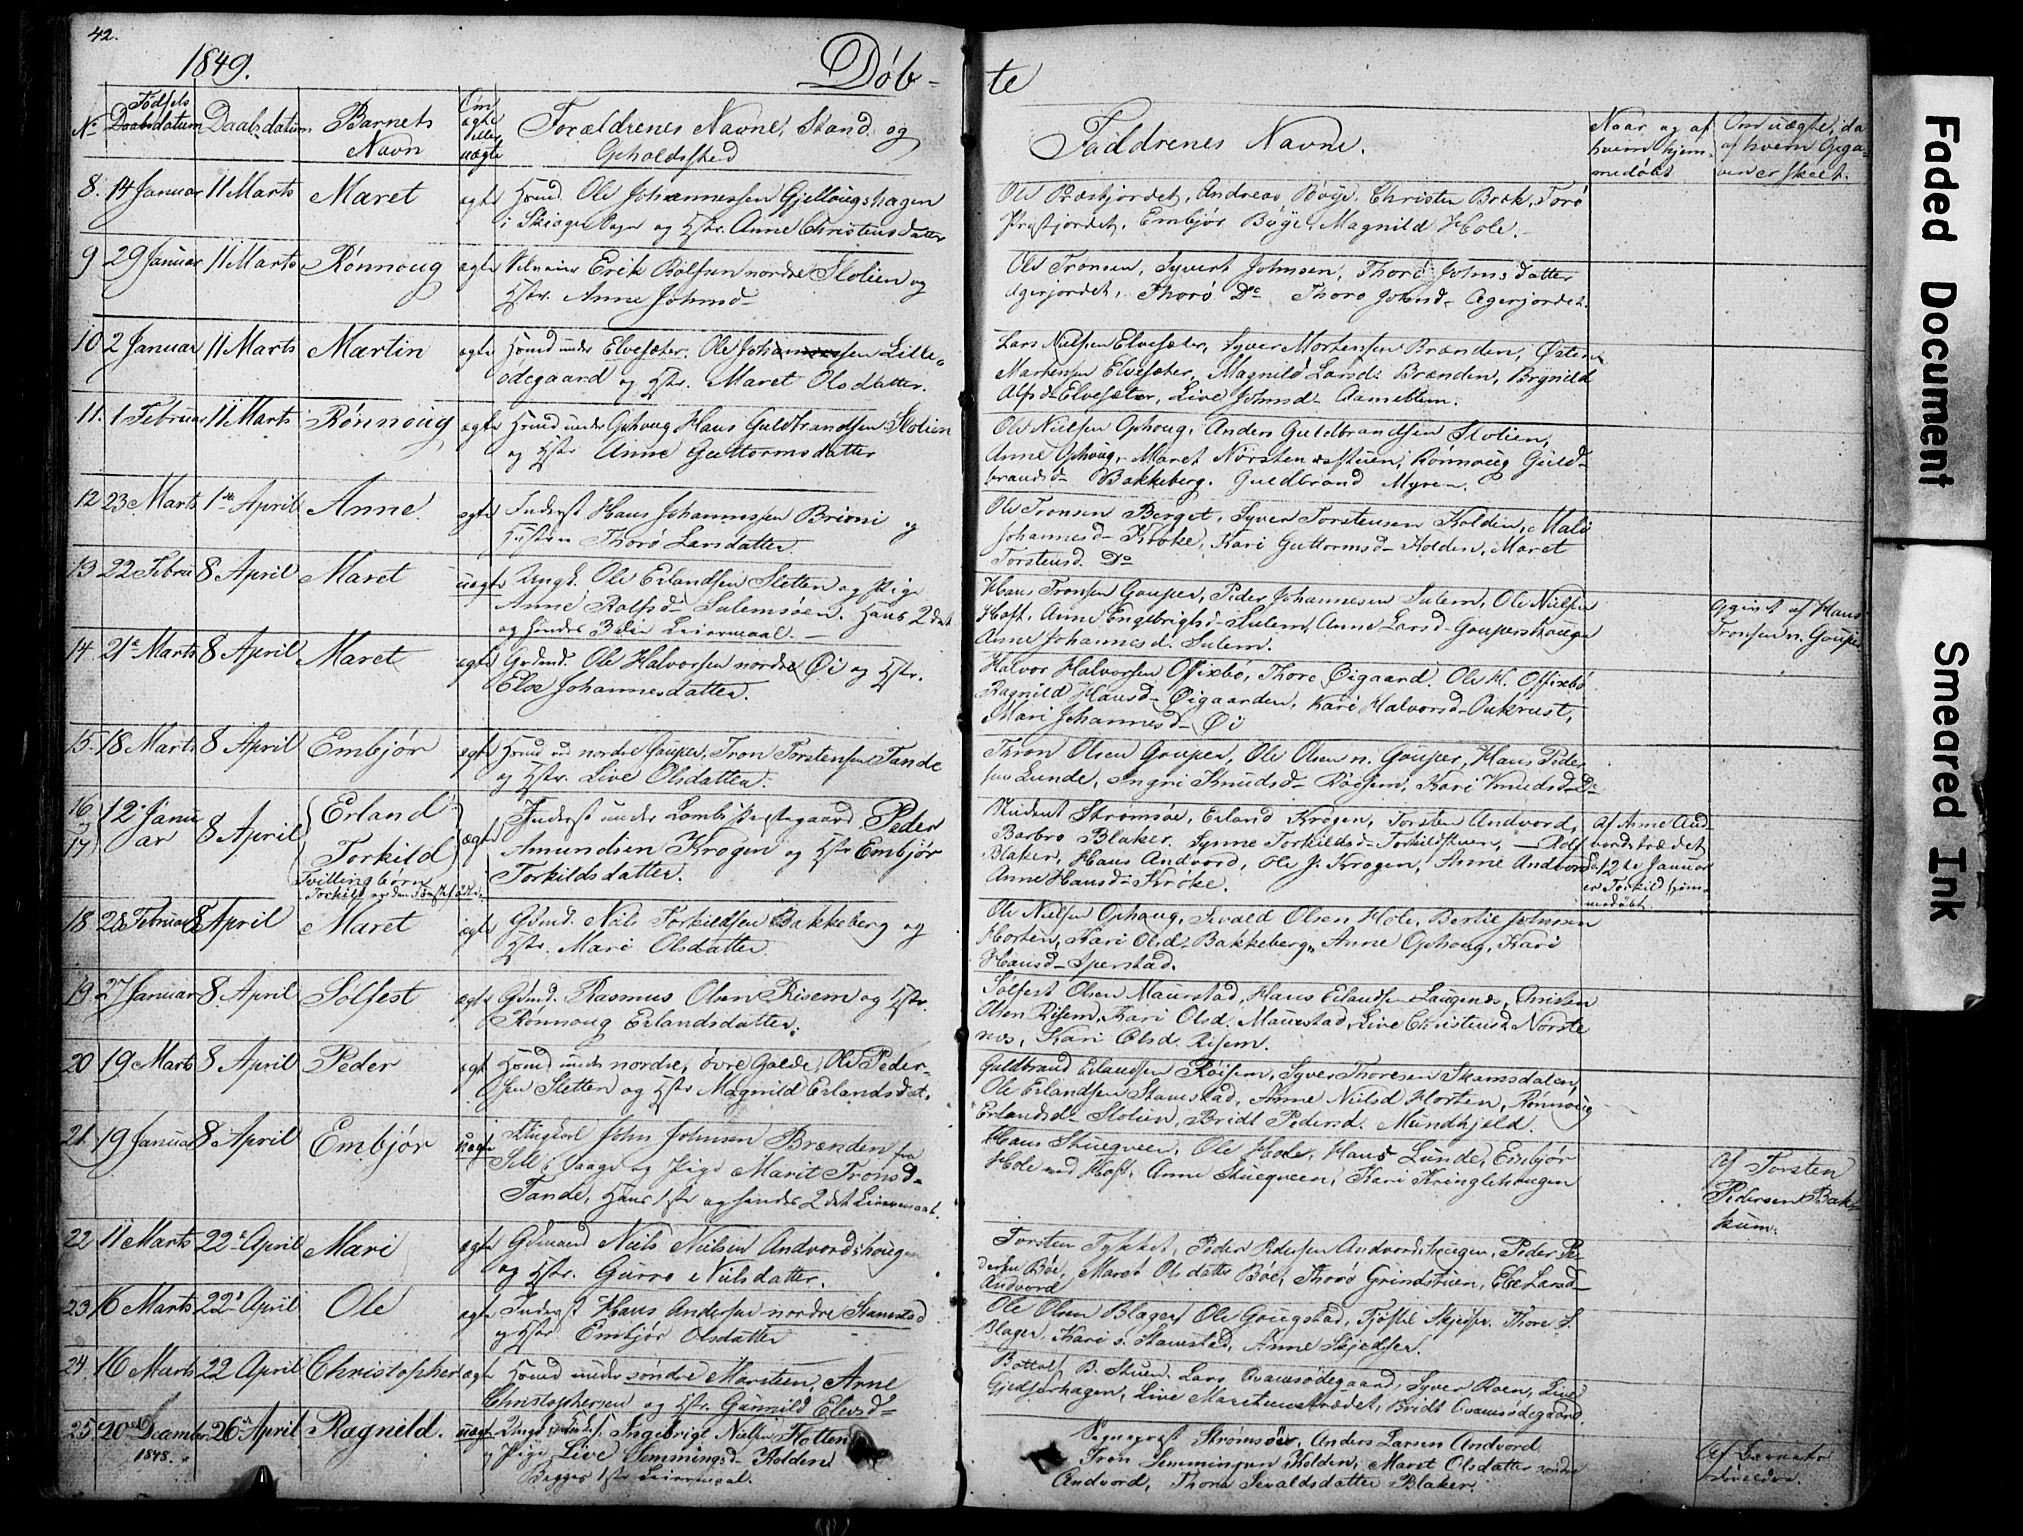 42.
1849.
Døb-
te
No
Fødsels
Daabsdatum
Daabsdatum
Barnets
Navn
Om
ægte
eller
uægte
Forældrenes Navne, Stand og
Opholdssted
Faddrenes Navne.
Naar og af
hvem hjem-
medøbt
Om uægte, da
af hvem Opga-
ven er skeet.
8. 14 Januar 11 Marts Maret ægte Hmd. Ole Johannessen Gjellougshagen
i Skiager Sogn og Hstr. Anne Christensdatter
Ole Præstjordet, Andreas Bøye, Christen Bræk, Torø
Præstjordet, Embjør Bøye, Magnild Hole.
9 29 Januar 11 Marts Rønnoug ægte Erik Rolfsen nordre Slolien og
Hstr. Anne Johnsd-
Ole Tronsen, Syvert Johnsen, Thorø Johnsdatter
Agerjordet, Thorø Do Thoro Johnsd- Agerjordet.
10. 2 Januar 11 Marts Martin ægte Hmd under Elvesæter. Ole Johannessen Lille-
ødegaard og Hstr. Maret Olsdatter.
Lars Nielsen Elvesæter, Syver Mortensen Brænden, Østen
Mortensen Elvesæter, Magnild Larsd. Brænden, Brynild
Alfsd- Elvesæter, Live Johnsd-
11. 1 Februar 11 Marts Rønnoug ægte Hmd under Ophoug Hans Guldbrandsen Slolien
og Hstr Anne Guttormsdatter
Ole Nielsen Ophoug, Anders Guldbrandsen Slolien,
Anne Ophoug, Maret Nørstenæsstuen, Rønnoug Guld-
brandsd- Bakkeberg. Guldbrand Myren.
12 23 Marts 1ste April Anne. ægte Inderst Hans Johannessen Brimi og
Hustru Thorø Larsdatter
Ole Tronsen Berget, Syver Torstensen Kolden, Mali
Johannesd- Krøke, Kari Guttormsd- Kolden, Maret
Torstensd. Do
13 22 Febru 8 April Maret uægte Ungk. Ole Erlandsen Sletten og Pige
Anne Rolfsd- Sulemsøen. Hans 2det
og hendes 3die Leiermaal.
Hans Tronsen Gouper, Peder Johannesen Sulem, Ole Nielsen
Hoft, Anne Engebrigtsd- Sulem, Anne Larsd- Goupershougen
Anne Johannesd. Sulem.
Opgivet af Hans
Tronsen n. Gouper
14 21 Marts 8 April Maret ægte Grdmd. Ole Halvorsen nordre Øi og Hstr.
Else Johannesdatter.
Halvor Halvorsen Offixbø, Thore Øigaard. Ole H. Offixbø
Ragnild Hansd- Øigaarden, Kari Halvorsd- Aukrust,
Mari Johannesd- Øi
15. 18 Marts 8 April Embjør ægte Hmd u. nordre Gouper, Tron Torstensen Tande
og Hstr. Live Olsdatter.
Thron Olsen Gouper, Ole Olsen n. Gouper, Hans Peder
sen Lunde, Ingri Knudsd- Røisem, Kari Knudsd- Do
16
og
17
12 Janu
ar
8 April
Erland
Torkild
Tvillingbørn
Torkild er den Førstefødte.
ægte
Inderst under Lombs Præstegaard Peder
Amundsen Krogen og Hstr Embjør
Torkildsdatter.
Student Strømsøe, Erland Krogen, Torsten Andvord,
Barbro Blaker, Synne Torkildsd- Torkildstuen, Rolf
Blaker, Hans Andvord, Ole J. Krogen, Anne Andvord
Anne Hansd- Krøke.
Af Anne And-
vordstrædet
d. 12te Januar
er Torkild hjem-
medøbt.
18 28 Februar 8 April Maret ægte Grdmd. Nils Torkildsen Bakkeberg og
Hstr. Mari Olsdatter.
Ole Nielsen Ophoug, Sevald Olsen Hole, Bertil Johnsen
Horten, Kari Olsd- Bakkeberg, Anne Ophoug, Kari
Hansd- Sperstad.
19 27 Januar 8. April Sølfest ægte Grdmd. Rasmus Olsen Risem og Hstr.
Rønnoug Erlandsdatter.
Sølfest Olsen Maurstad, Hans Erlandsen Laugenæs, Christen
Olsen Risem, Kari Olsd. Maurstad, Live Christensd. Nørste
næs, Kari Olsd. Risem.
20 19 Marts 8 April Peder ægt Hmd under nordre, øvre Galde, Ole Peder-
sen Sletten og Hstr Magnild Erlandsdat.
Guldbrand Erlandsen Røisem, Syver Thoresen Skamsdalen,
Ole Erlandsen Stamstad, Anne Nielsd Horten, Rønnoug
Erlandsd- Slolien, Bridt Pedersd. Mundhjeld.
21. 19 Januar 8 April Embjør uægte Ungkarl John Johnsen Brænden fra
Sell i Vaage og Pige Marit Tronsd-
Tande, Hans 1ste og hendes 2det Leiermaal.
Hans Stuegveen, Ole Hole, Hans Lunde, Embjør
Hole med Hoft, Anne Stuegveen, Kari Kringlehougen
Af Torsten
Pedersen Bak-
kum.
22 11 Marts 22 April Mari ægte Grdmand Niels Nielsen Andvordshougen
og Hstr. Gurro Nielsdatter.
Torsten Sykket, Peder Pedersen Andvordshougen, Peder Pe-
dersen Bøe, Maret Olsdatter Bøe, Thorø Grindstuen, Else Larsd-
Andvord
23 16 Marts 22 April Ole ægte Inderst Hans Andersen nordre Stamstad
og Hstr Embjør Olsdatter
Ole Olsen Blager, Ole Gougstad, Thore S.
Blager, Kari s. Stamstad, Anne
24. 16 Marts 22 April Christopher ægte Hmd under søndre Marstein, Arne
Christophersen og Hstr. Gunnild Elevsd-
Bottolf B. Stuen, Lars Qvamsødegaard, Syver Roen, Live
Marsteinstrædet, Bridt Qvamsødegaard.
25. 20 December 26 April Ragnild. uægt Ingebrigt Nielsen Flotten
1848.
og Pige Live Semmingsd- Kolden
Begges 1ste Leiermaal.
Strømsøe, Anders Larsen Andvord
Tron Semmingsen Kolden, Maret Olsdatter søndre
Andvord, Thora Sevaldsdatter Blaker.
Af
Faded Document
Smeared Ink